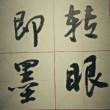 转眼
即墨